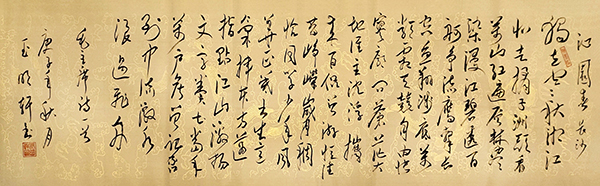 沁園春 长沙
独立寒秋湘江
北去橘子洲頭看
萬山红遍层林尽
染漫江碧透百
舸争流鹰击长
空鱼翔浅底万
類霜天競自由悵
寥廓问苍茫大
地谁主沉浮携
来百侣曾游憶往
昔峥嵘歲月稠
恰同学少年風
華正茂书生意
氣挥斥方遒
指點江山激扬
文字粪土當年
萬户侯曾记否
到中流激水
浪遏飛舟
毛主席詩一首
庚子年秋月